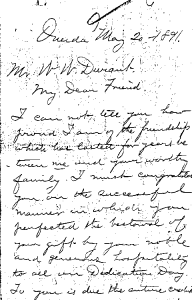 Oneida May 20 1891.
Mr. W. W. Durant.
My Dear Friend
I can not tell you how
proud I am of the friendship
which has lasted for years be
tween me and your worthy
family. I must congratulate
you on the successful
manner in which you
perfected the bestowal of
your gift by your noble
and generous hospitality
to all on Dedication Day.
To you is due the entire credit